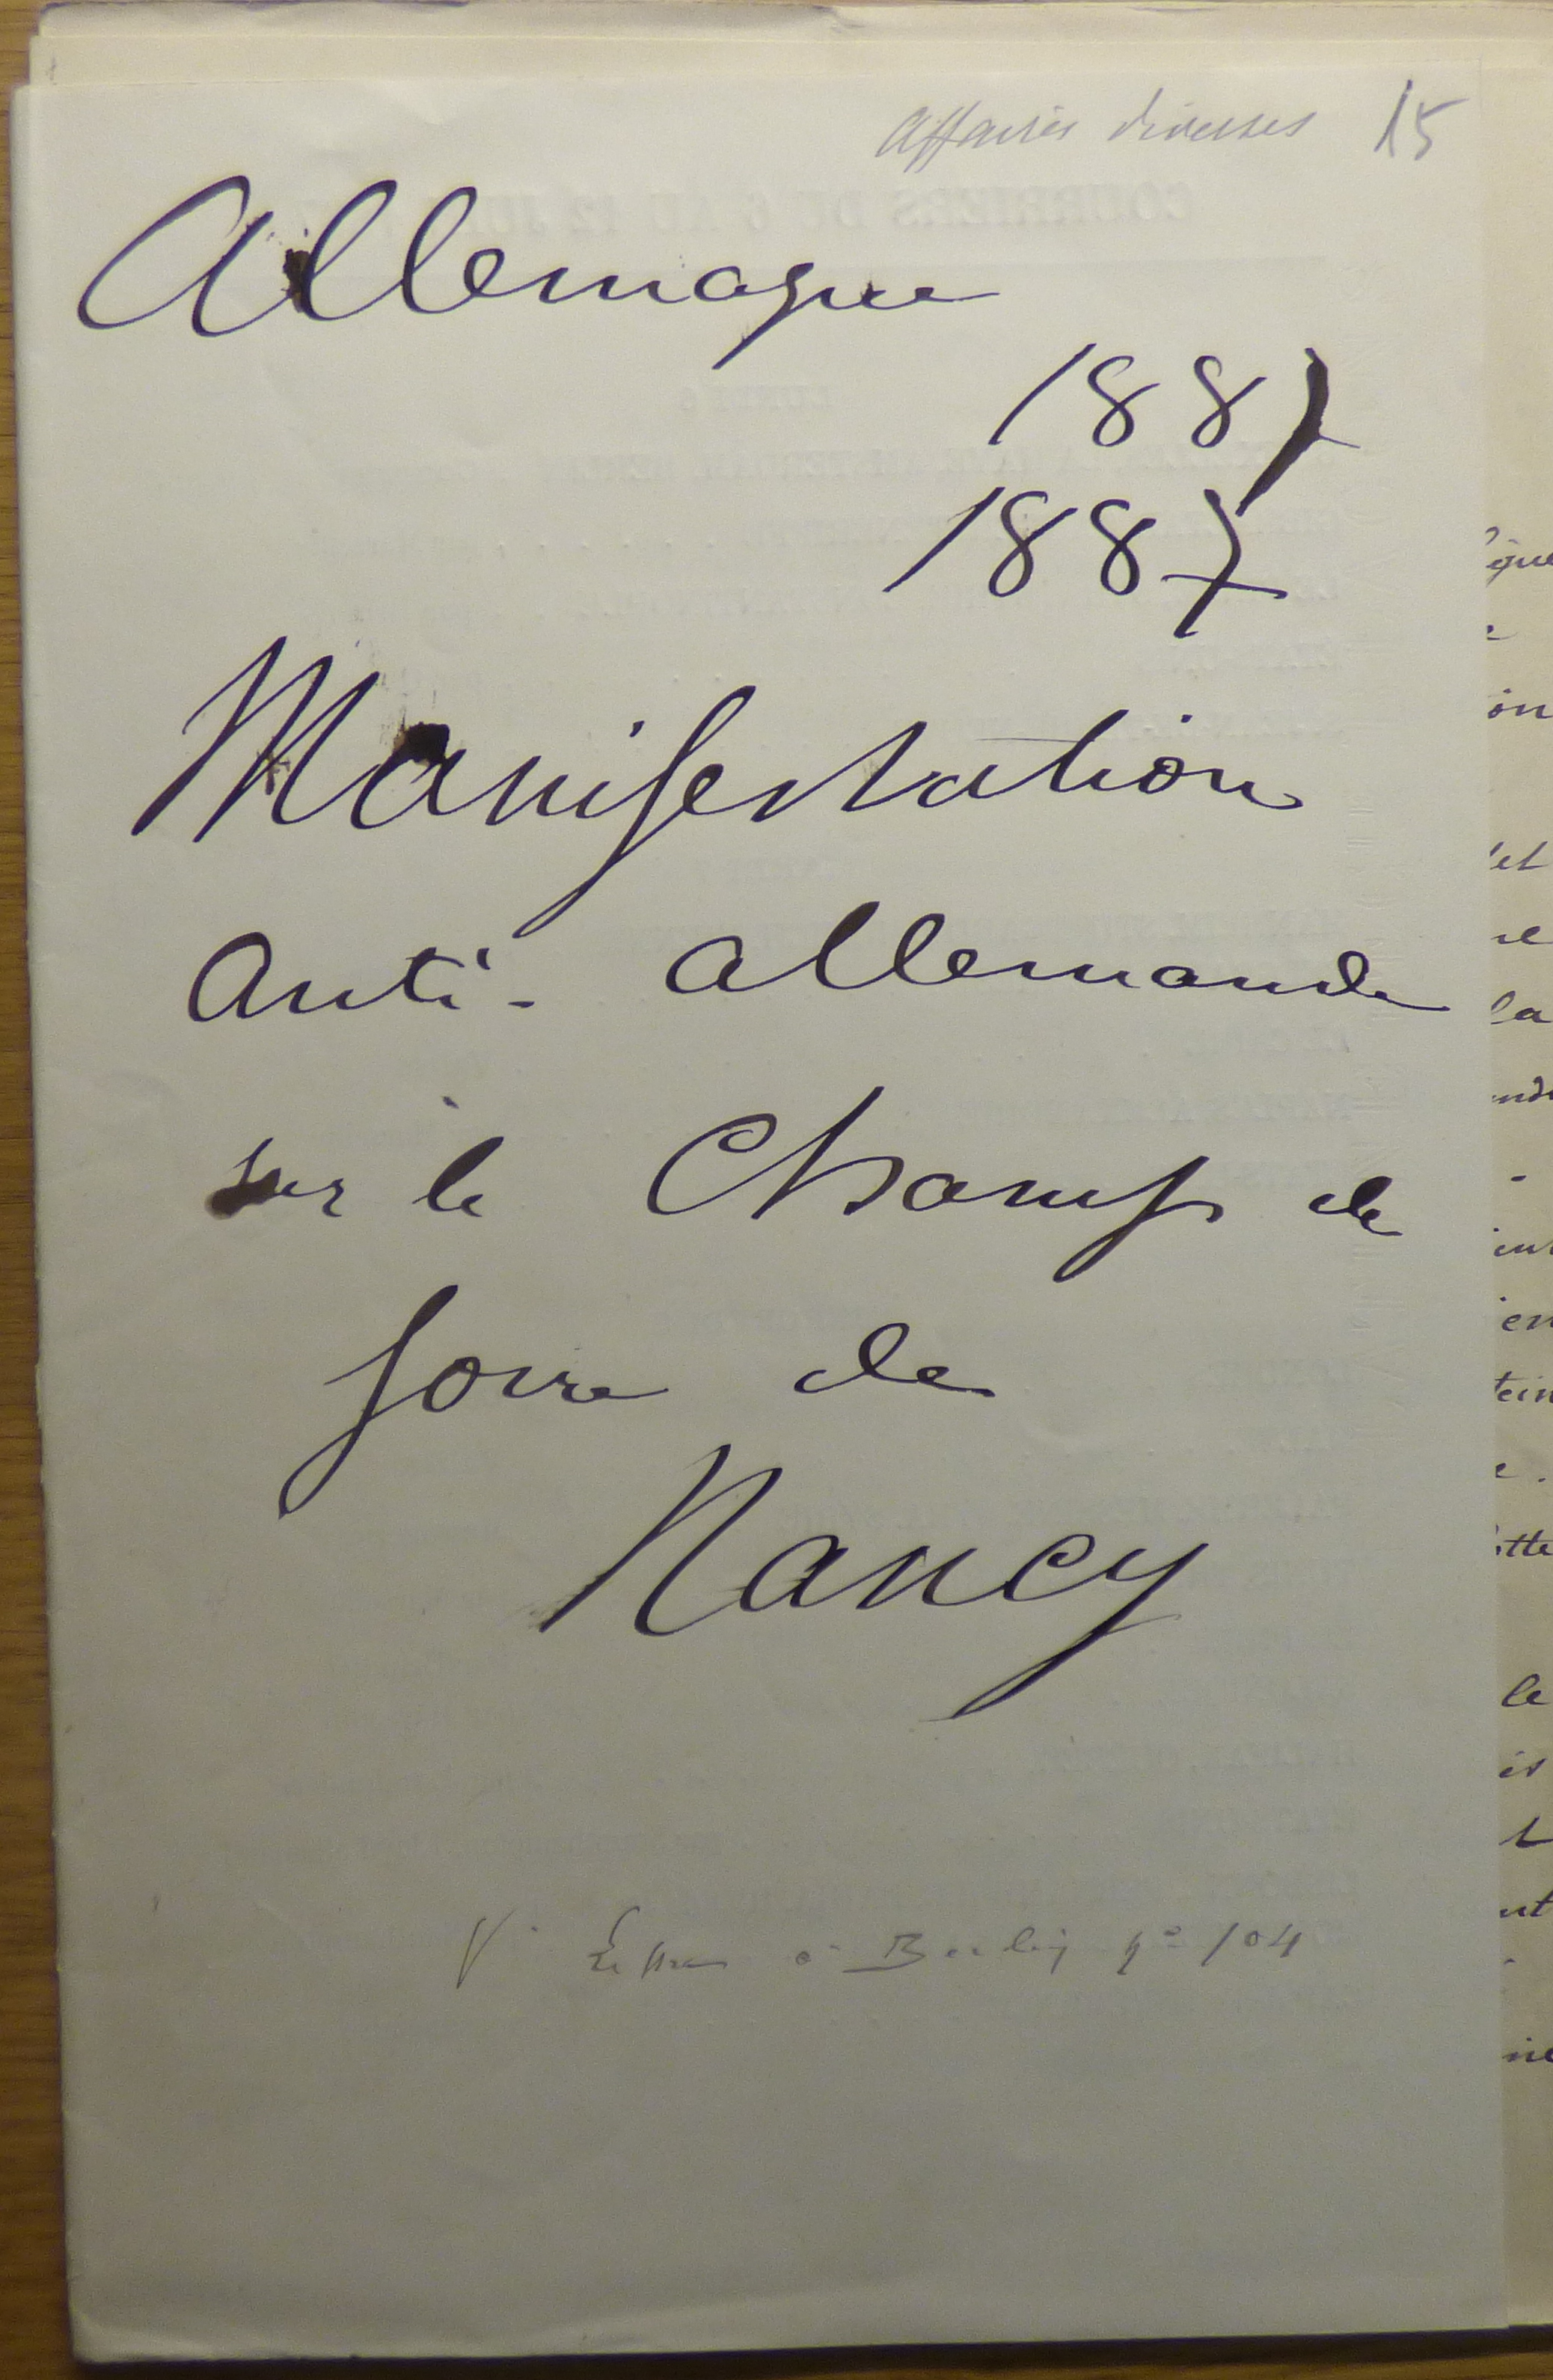 affaires diverses 15
Allemagne
1887
1887
Manifestation
Anti-allemande
sur le Champ de
foire de
Nancy
V. Lettre à Berlin nº 104